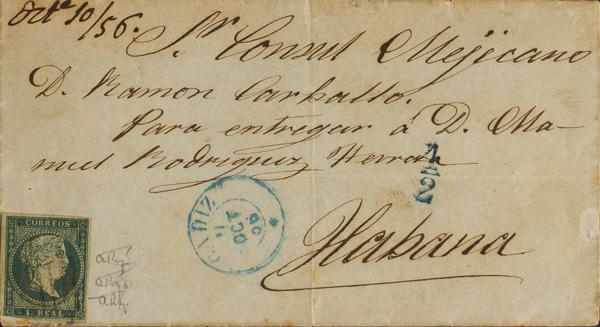 Oct.e 10/56.
Sr Consul Mejicano
D. Ramon Carballo.
Para entregar á D. Ma-
nuel Rodriguez Herran
1/2
CADIZ
Habana
CORREOS
1. REAL